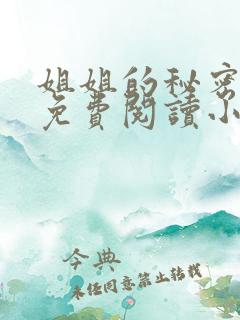 姐姐的秘密
免費閱讀小
今典
未经同意禁止转载